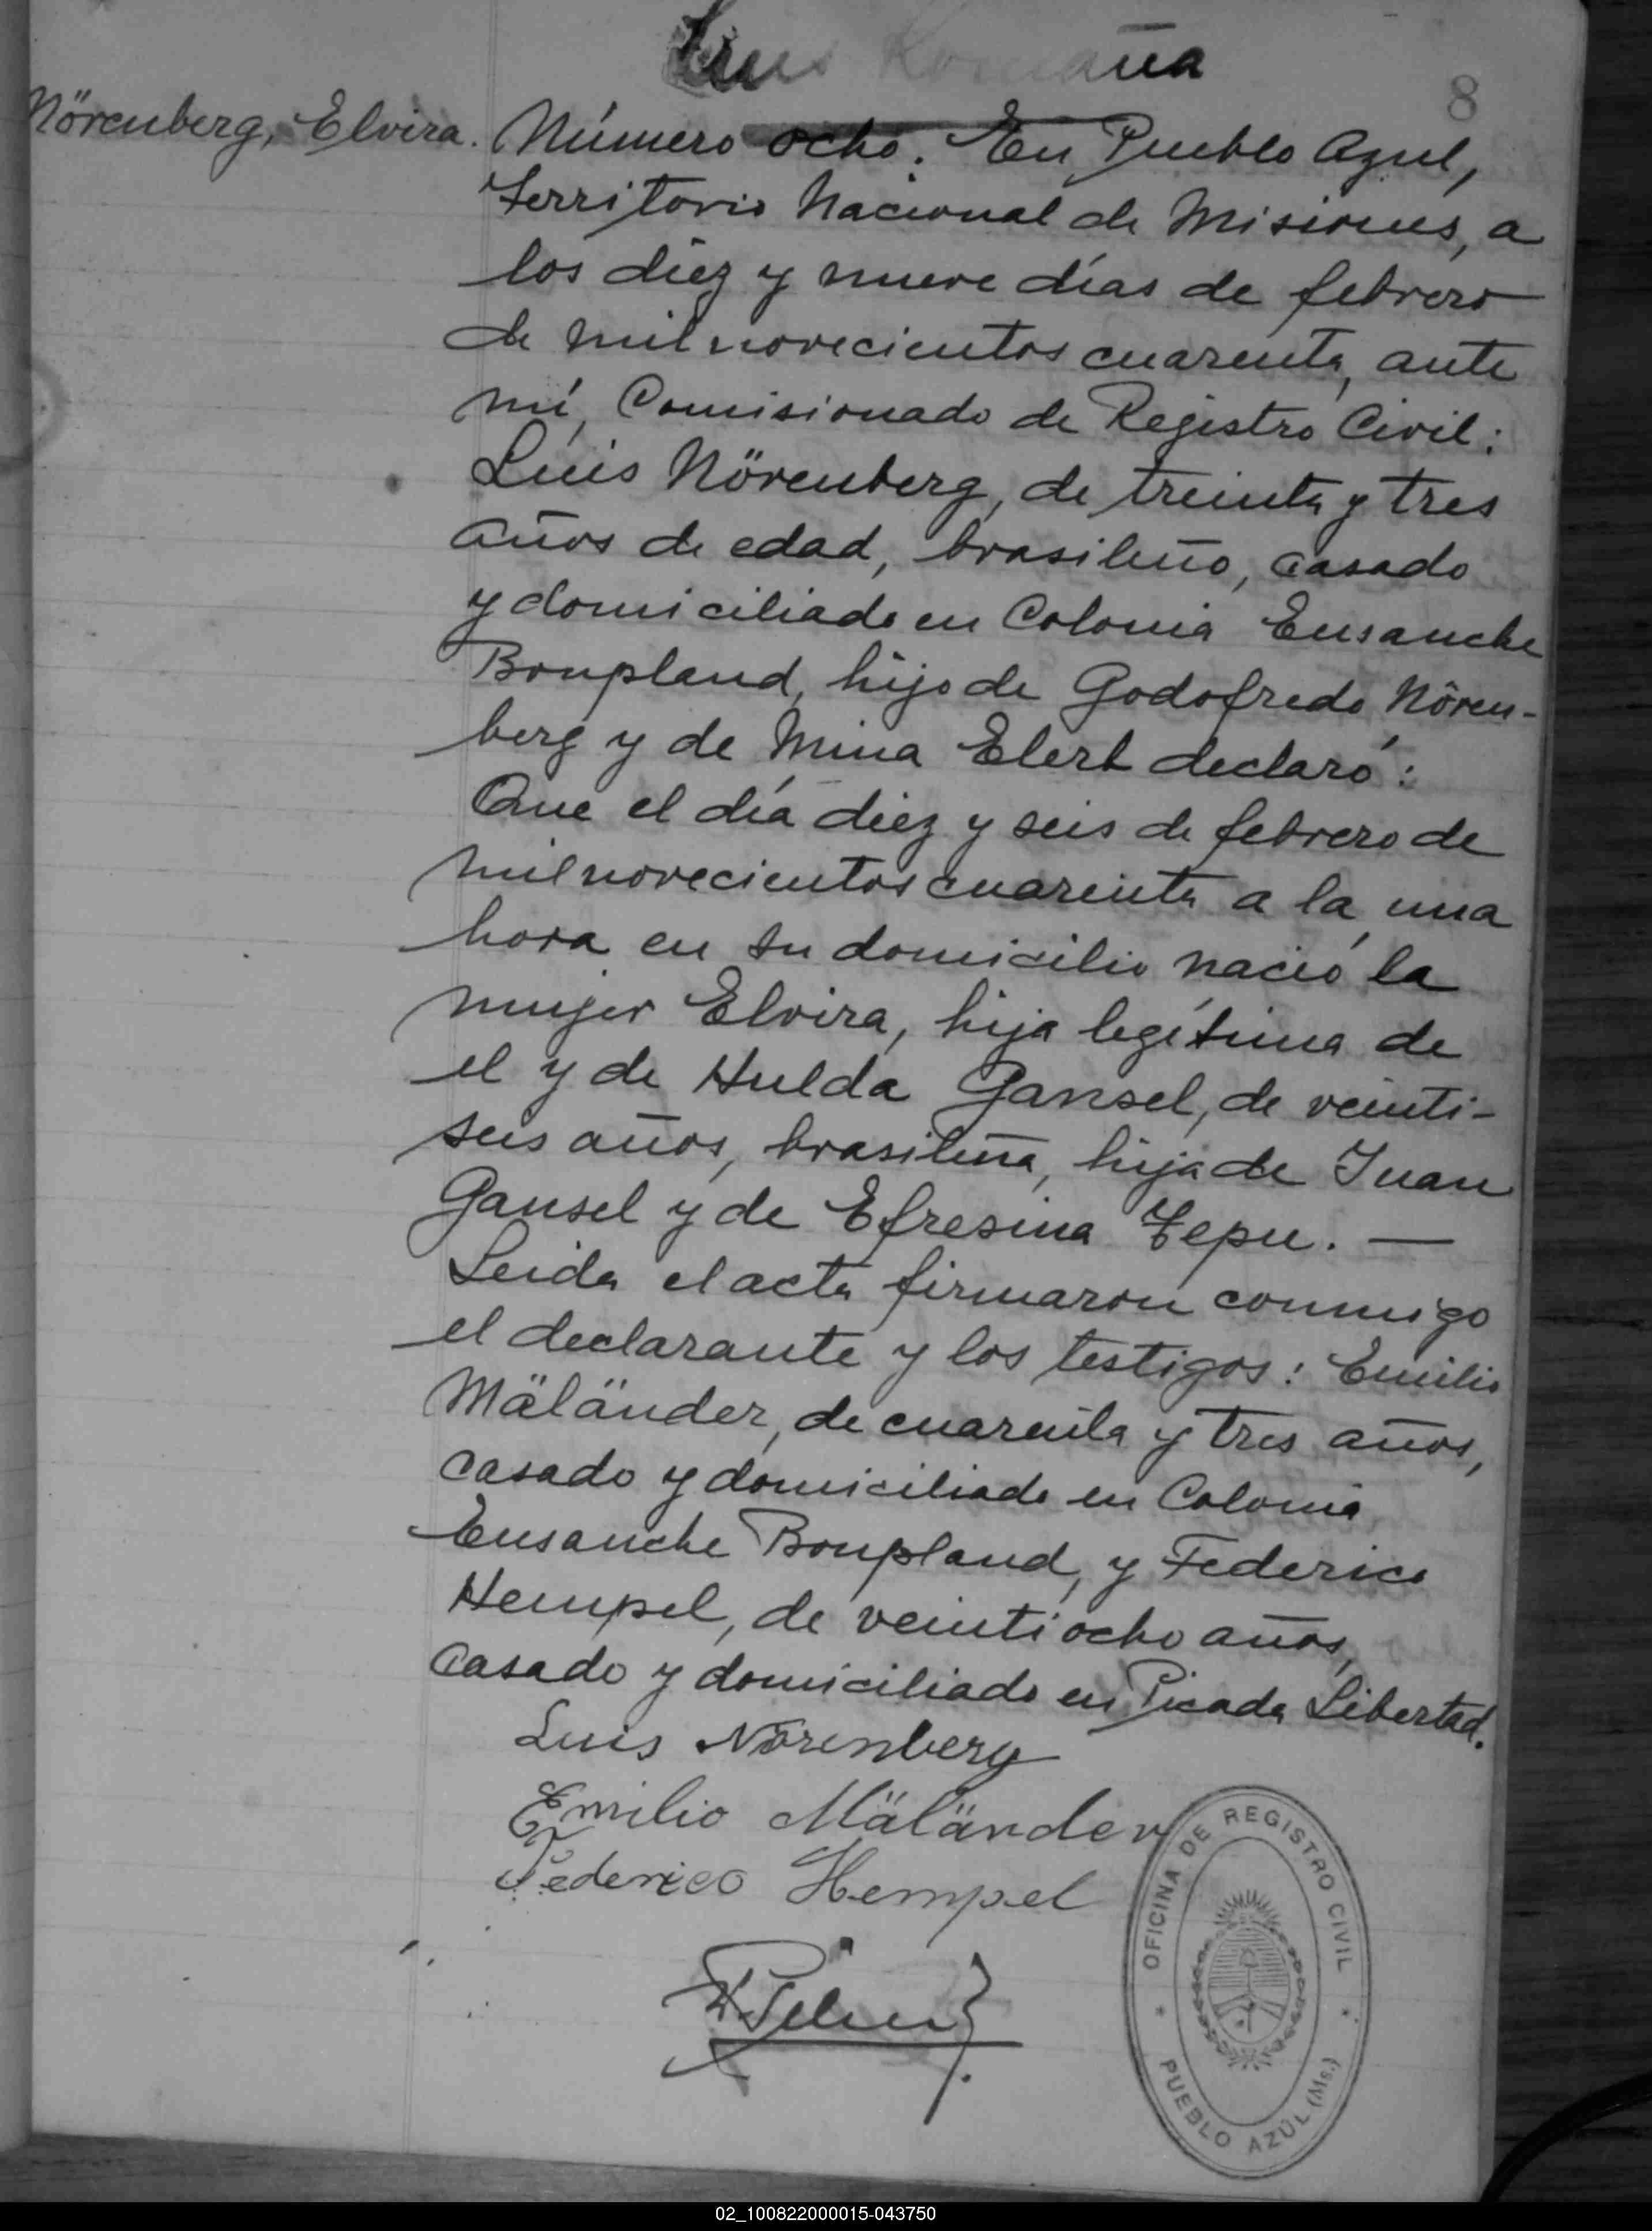 Luis Romaña
8
Nörenberg, Elvira.
Número ocho. En Pueblo Azul,
Territorio Nacional de Misiones, a
los diez y nueve días de febrero
de mil novecientos cuarenta, ante
mí, Comisionado de Registro Civil:
Luis Nörenberg, de treinta y tres
años de edad, brasileño, casado
y domiciliado en Colonia Ensanche
Bonpland, hijo de Godofredo Nören-
berg y de Mina Elert declaró:
Que el día diez y seis de febrero de
mil novecientos cuarenta a la una
hora en su domicilio nació la
mujer Elvira, hija legítima de
el y de Hulda Gansel, de veinti-
seis años, brasileña, hija de Juan
Gansel y de Efresina Tepu. —
Leida el acta firmaron conmigo
el declarante y los testigos: Emilio
Mäländer, de cuarenta y tres años,
casado y domiciliado en Colonia
Ensanche Bonpland, y Federico
Hempel, de veintiocho años,
casado y domiciliado en Picada Libertad.
Luis Nörenberg
Emilio Mäländer
Federico Hempel
OFICINA DE REGISTRO CIVIL
* PUEBLO AZUL (Ms.) *
02_100822000015-043750